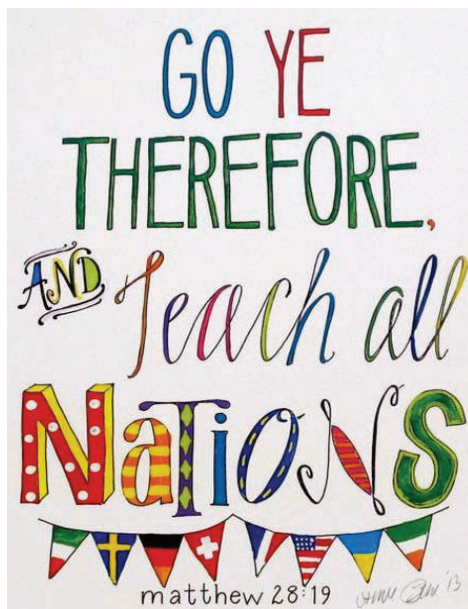 GO YE
THEREFORE,
AND Teach all
NaTioNS
matthew 28:19
'13